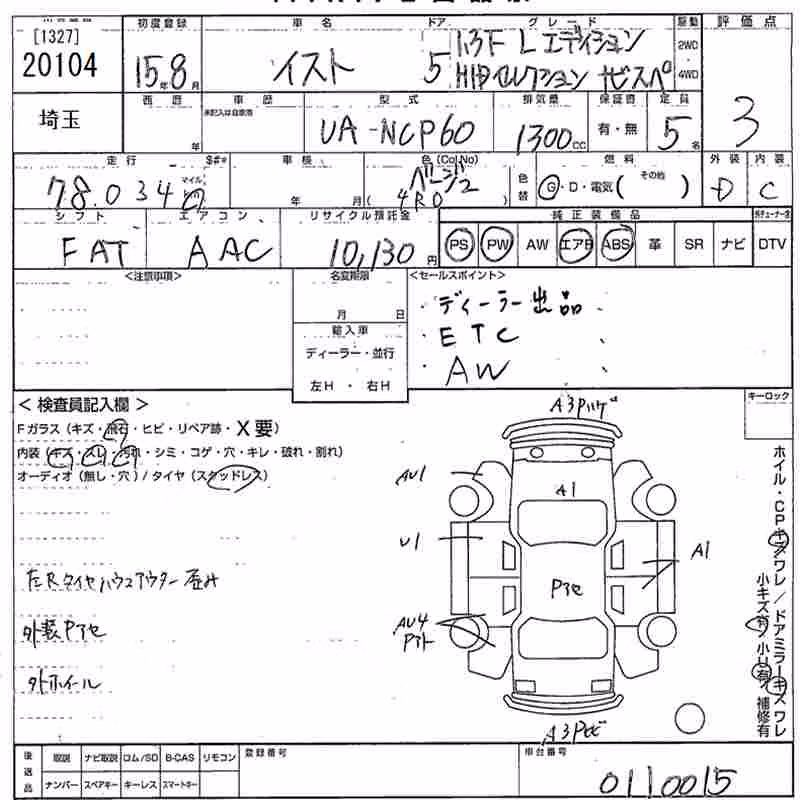 [1327]
20104
初度登録
15年8月
車名
イスト
ドア
5
グレード
1.3F L エディション
HIDセレクション ナビスペ
駆動
2WD
4WD
評価点
3
埼玉
西歴
年
車歴
未記入は自家用
型式
UA-NCP60
排気量
1300cc
保証書
有・無
定員
5名
走行
78.034
マイル
$#*
車検
年 月
色(Col No)
ベージュ
( 4R0 )
色替
燃料
G・D・電気( その他 )
外装
D
内装
C
シフト
FAT
エアコン
AAC
リサイクル預託金
10,130円
純正装備品
PS PW AW エアB ABS 革 SR ナビ DTV
<注意事項>
名変期限
月 日
輸入車
ディーラー・並行
左H・右H
<セールスポイント>
・ディーラー出品
・ETC
・AW
<検査員記入欄>
Fガラス(キズ・飛石・ヒビ・リペア跡・X要)
内装(キズ・スレ・汚れ・シミ・コゲ・穴・キレ・破れ・割れ)
オーディオ(無し・穴)/タイヤ(スタッドレス)
左Rタイヤハウスアウター歪み
外装Pアセ
外ホイール
A3Pハゲ
AU1
A1
U1
A1
Pアセ
AU4
A3Pサビ
キーロック
ホイル・CPキズワレ/ドアミラーキズワレ
小キズ有 小U有 補修有
後送品
取説 ナビ取説 ロム/SD B-CAS リモコン
ナンバー スペアキー キーレス スマートキー
登録番号
車台番号
0110015